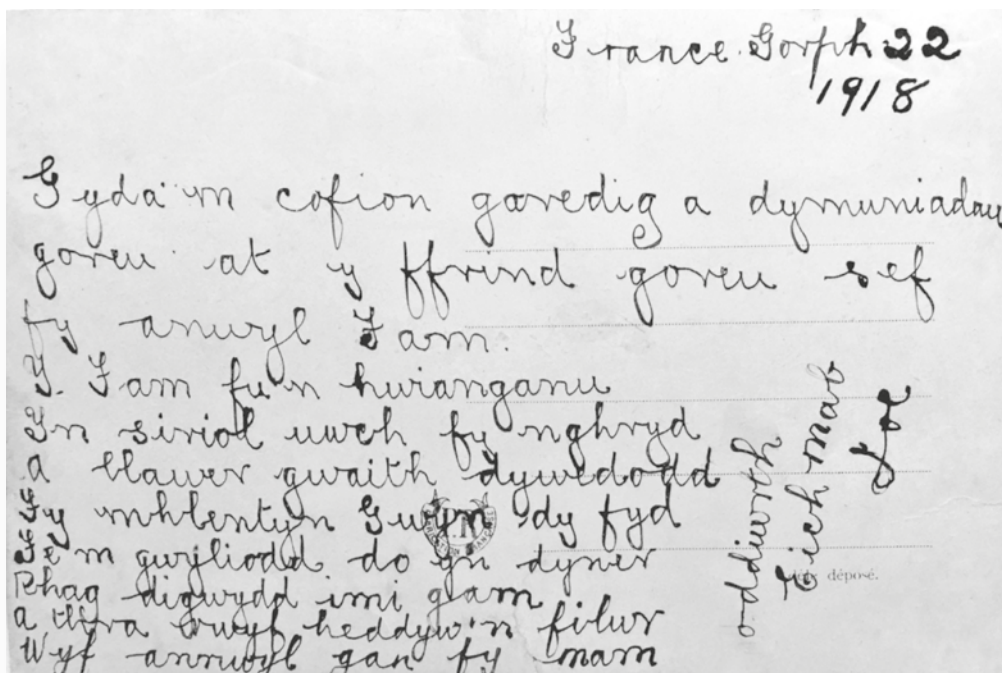 France. Gorph 22
1918
Gyda'm cofion garedig a dymuniadau
goreu at y ffrind goreu sef
fy anwyl Fam.
Y Fam fu'n hwianganu
Yn siriol uwch fy nghryd
a llawer gwaith dywedodd
Fy mhlentyn Gwyn dy fyd
Fe'm gwyliodd do yn dyner
Rhag digwydd imi gam
a thra rwyf heddyw'n filwr
Wyf annwyl gan fy mam
oddiwrth
Eich mab
Joe
déposé.